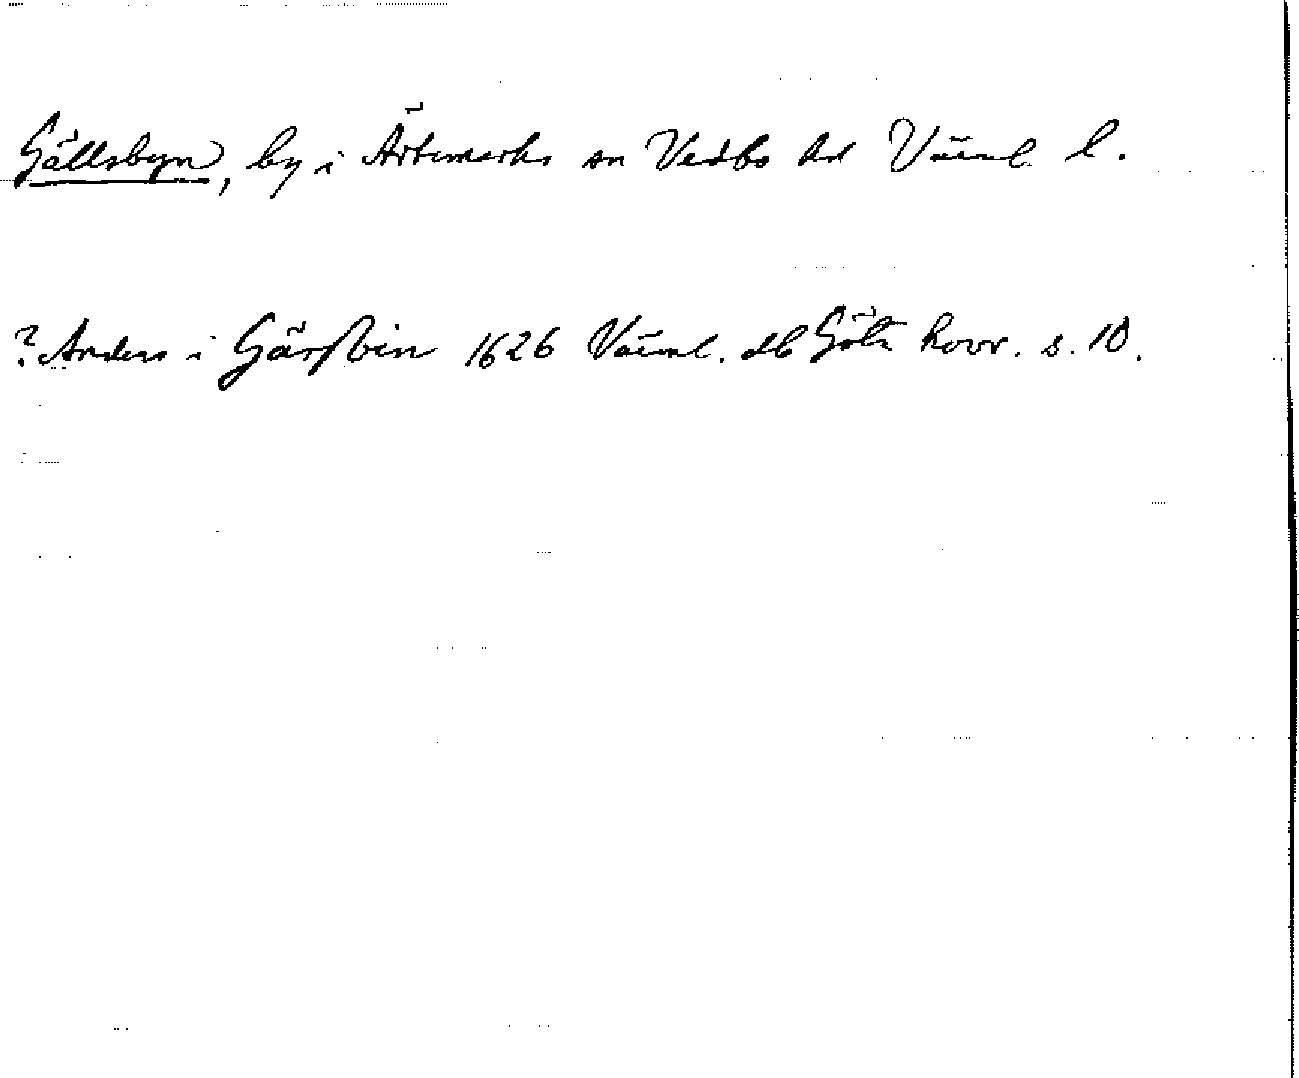 Gällsbyn, by i Ärtemarks sn Vedbo hd Väml l.
? Anders i Gärssbin 1626 Väml. db Göta hovr. s. 10.